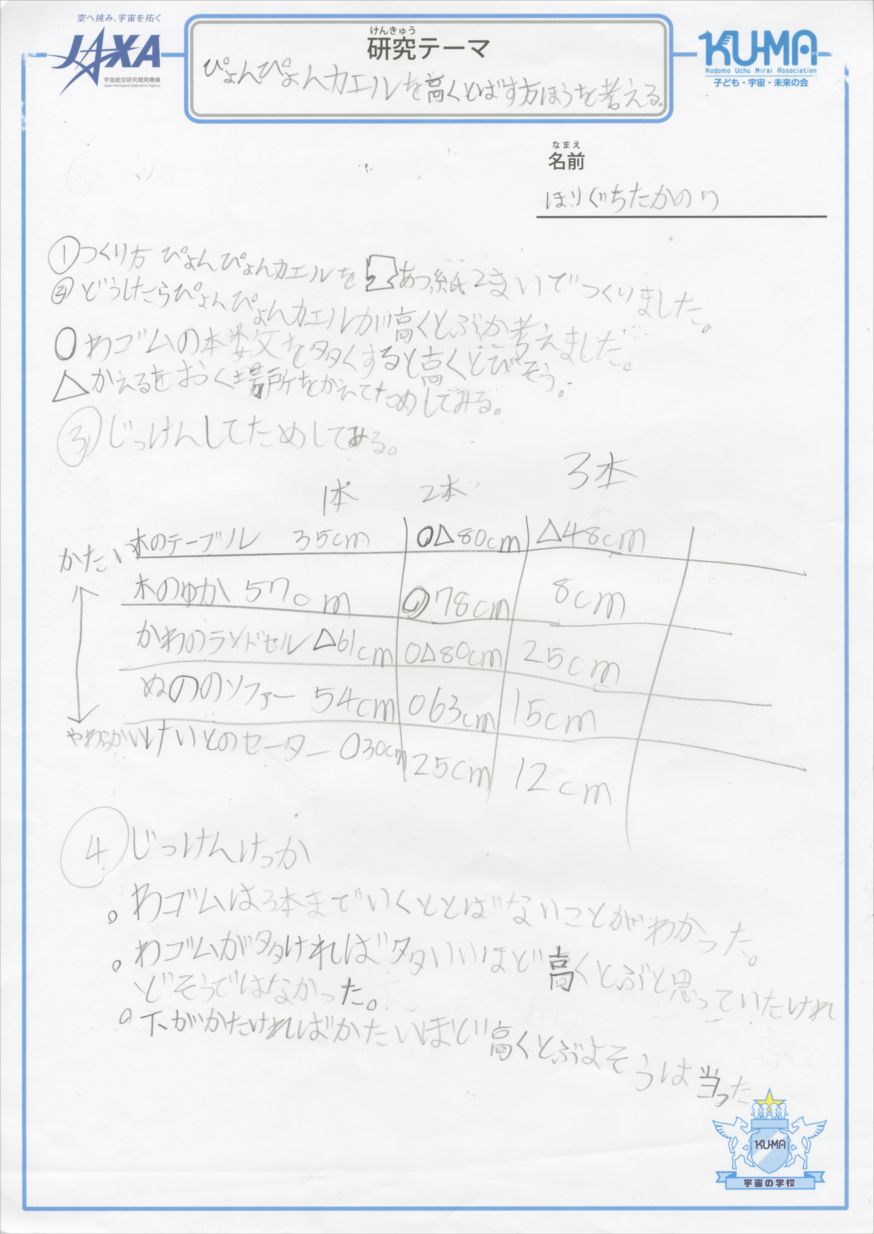 空へ挑み、宇宙を拓く
JAXA
宇宙航空研究開発機構
Japan Aerospace Exploration Agency
けんきゅう
研究テーマ
ぴょんぴょんカエルを高くとばす方ほうを考える。
KU-MA
Kodomo Uchu Mirai Association
子ども・宇宙・未来の会
なまえ
名前
ほりぐちたかのり
①つくり方 ぴょんぴょんカエルを あつ紙2まいでつくりました。
②どうしたらぴょんぴょんカエルが高くとぶか考えました。
○わゴムの本数文を多くすると高くとびそう。
△かえるをおく場所をかえてためしてみる。
③じっけんしてためしてみる。
1本 2本 3本
かたい 木のテーブル 35cm ○△80cm △48cm
木のゆか 57cm ○78cm 8cm
かわのランドセル △61cm ○△80cm 25cm
ぬののソファー 54cm ○63cm 15cm
やわらかい けいとのセーター ○30cm 25cm 12cm
④じっけんけっか
。わゴムは3本までいくととばないことがわかった。
。わゴムが多ければ多いいほど高くとぶと思っていたけれ
どそうではなかった。
。下がかたければかたいほど高くとぶよそうは当った
KUMA
宇宙の学校